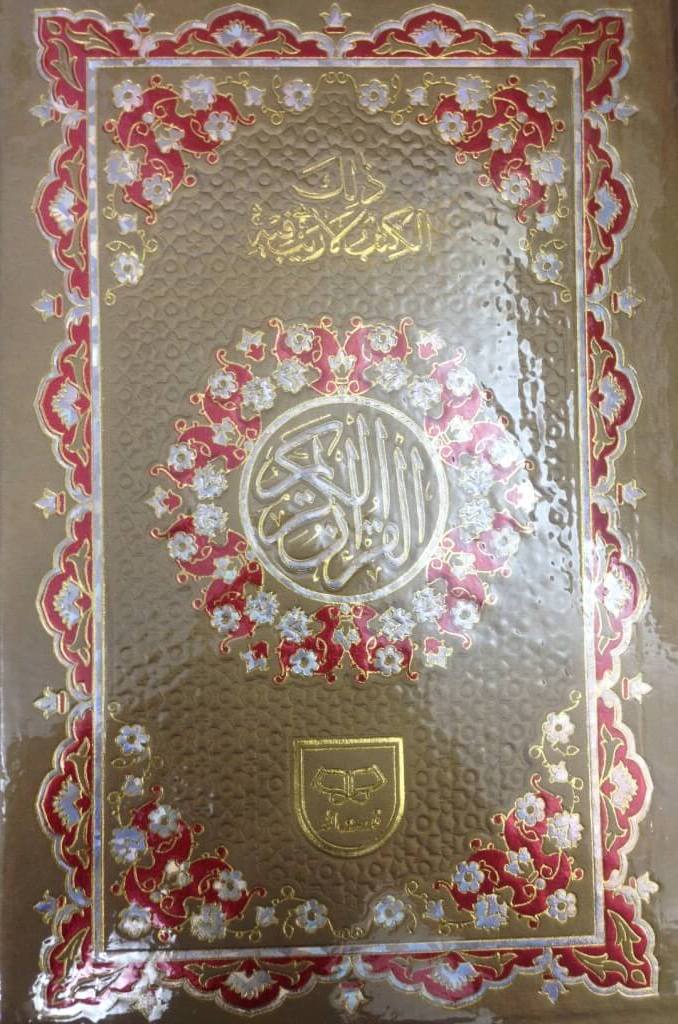 ذلك
الكتب لا ريب فيه
القرآن الكريم